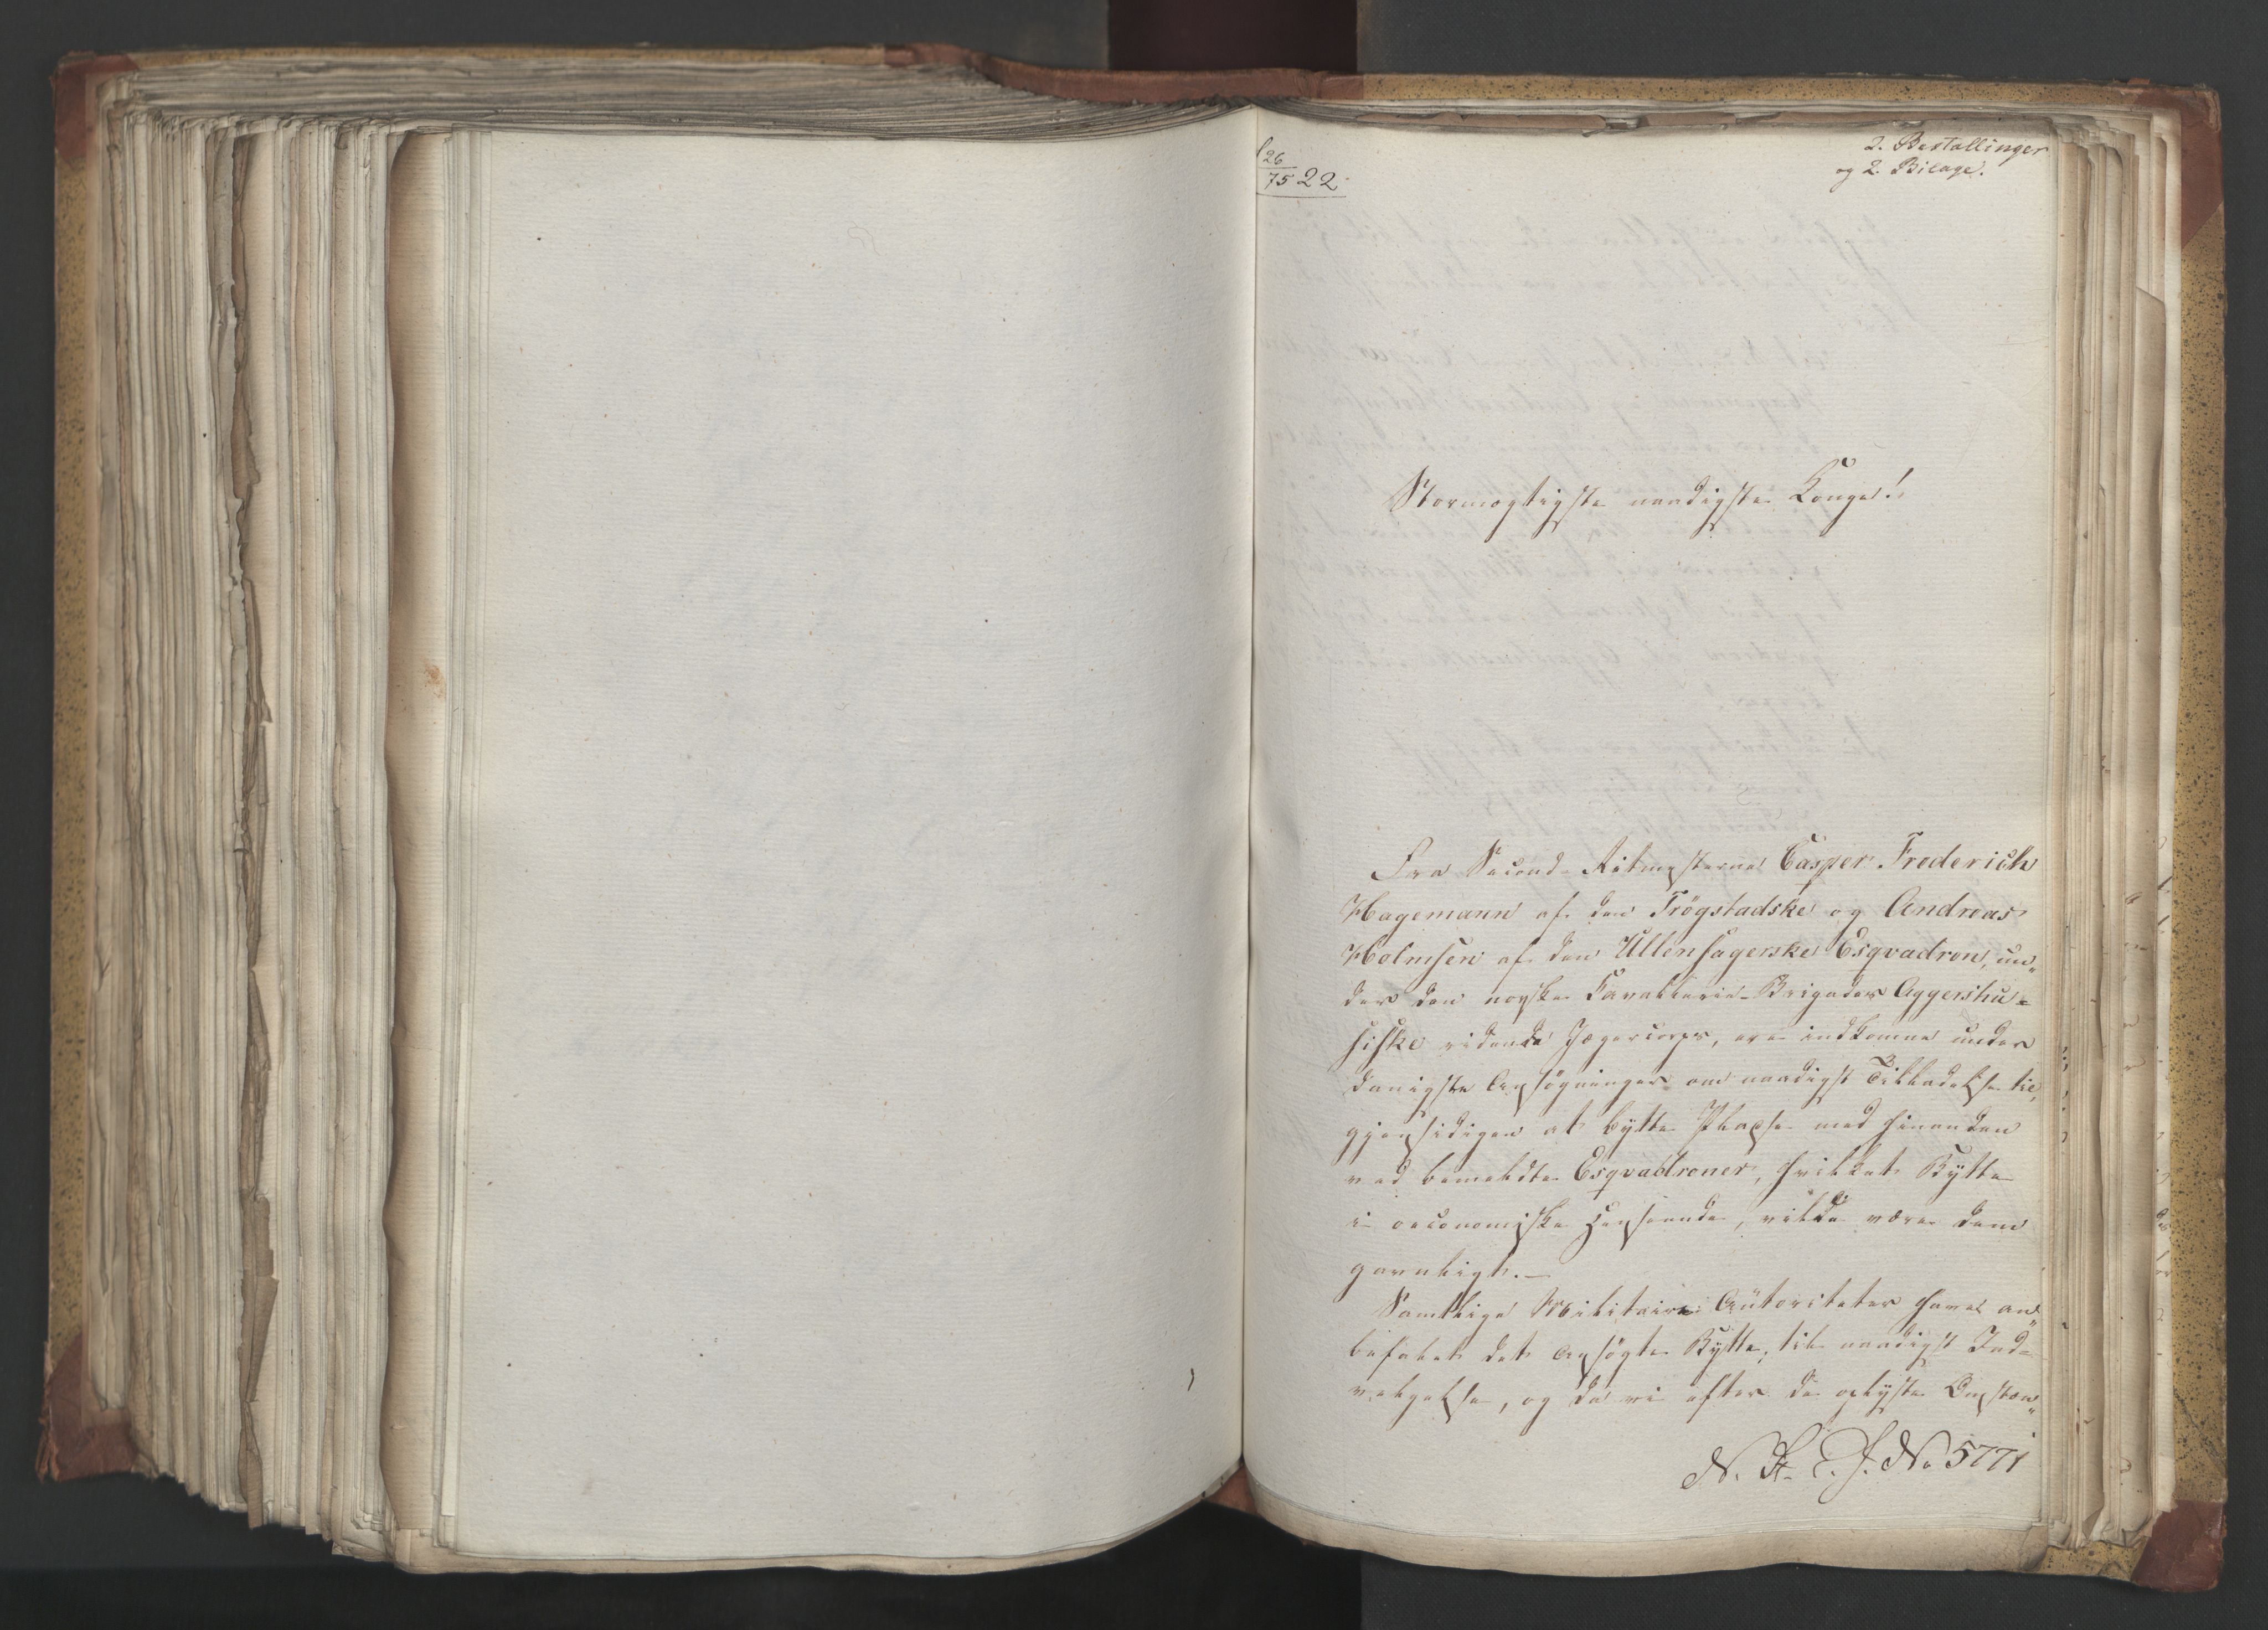 26
75 22.
2. Bestallinger
og 2. Bilage.
Stormægtigste naadigste Konge!
Fra Second-Ritmesterne Casper Frederich
Hagemann af den Trögstadske og Andreas
Holmsen af den Ullensagerske Esqvadron, un„
der den norske Cavallerie-Brigades Aggershu=
siske ridende Jægercorps, ere indkomne under
danigste Ansögninger om naadigst Tilladelse til,
gjensidigen at bytte Pladse med hinanden
ved bemeldte Esqvadroner, hvilket Bytte
i oeconomiske Henseende, vilde være dem
gavnligt.—
Samtlige Militaire Autoriteter have an„
befalet det ansögte Bytte, til naadigst Ind=
vilgelse, og da vi efter de oplyste Omstæn„
N. 5771